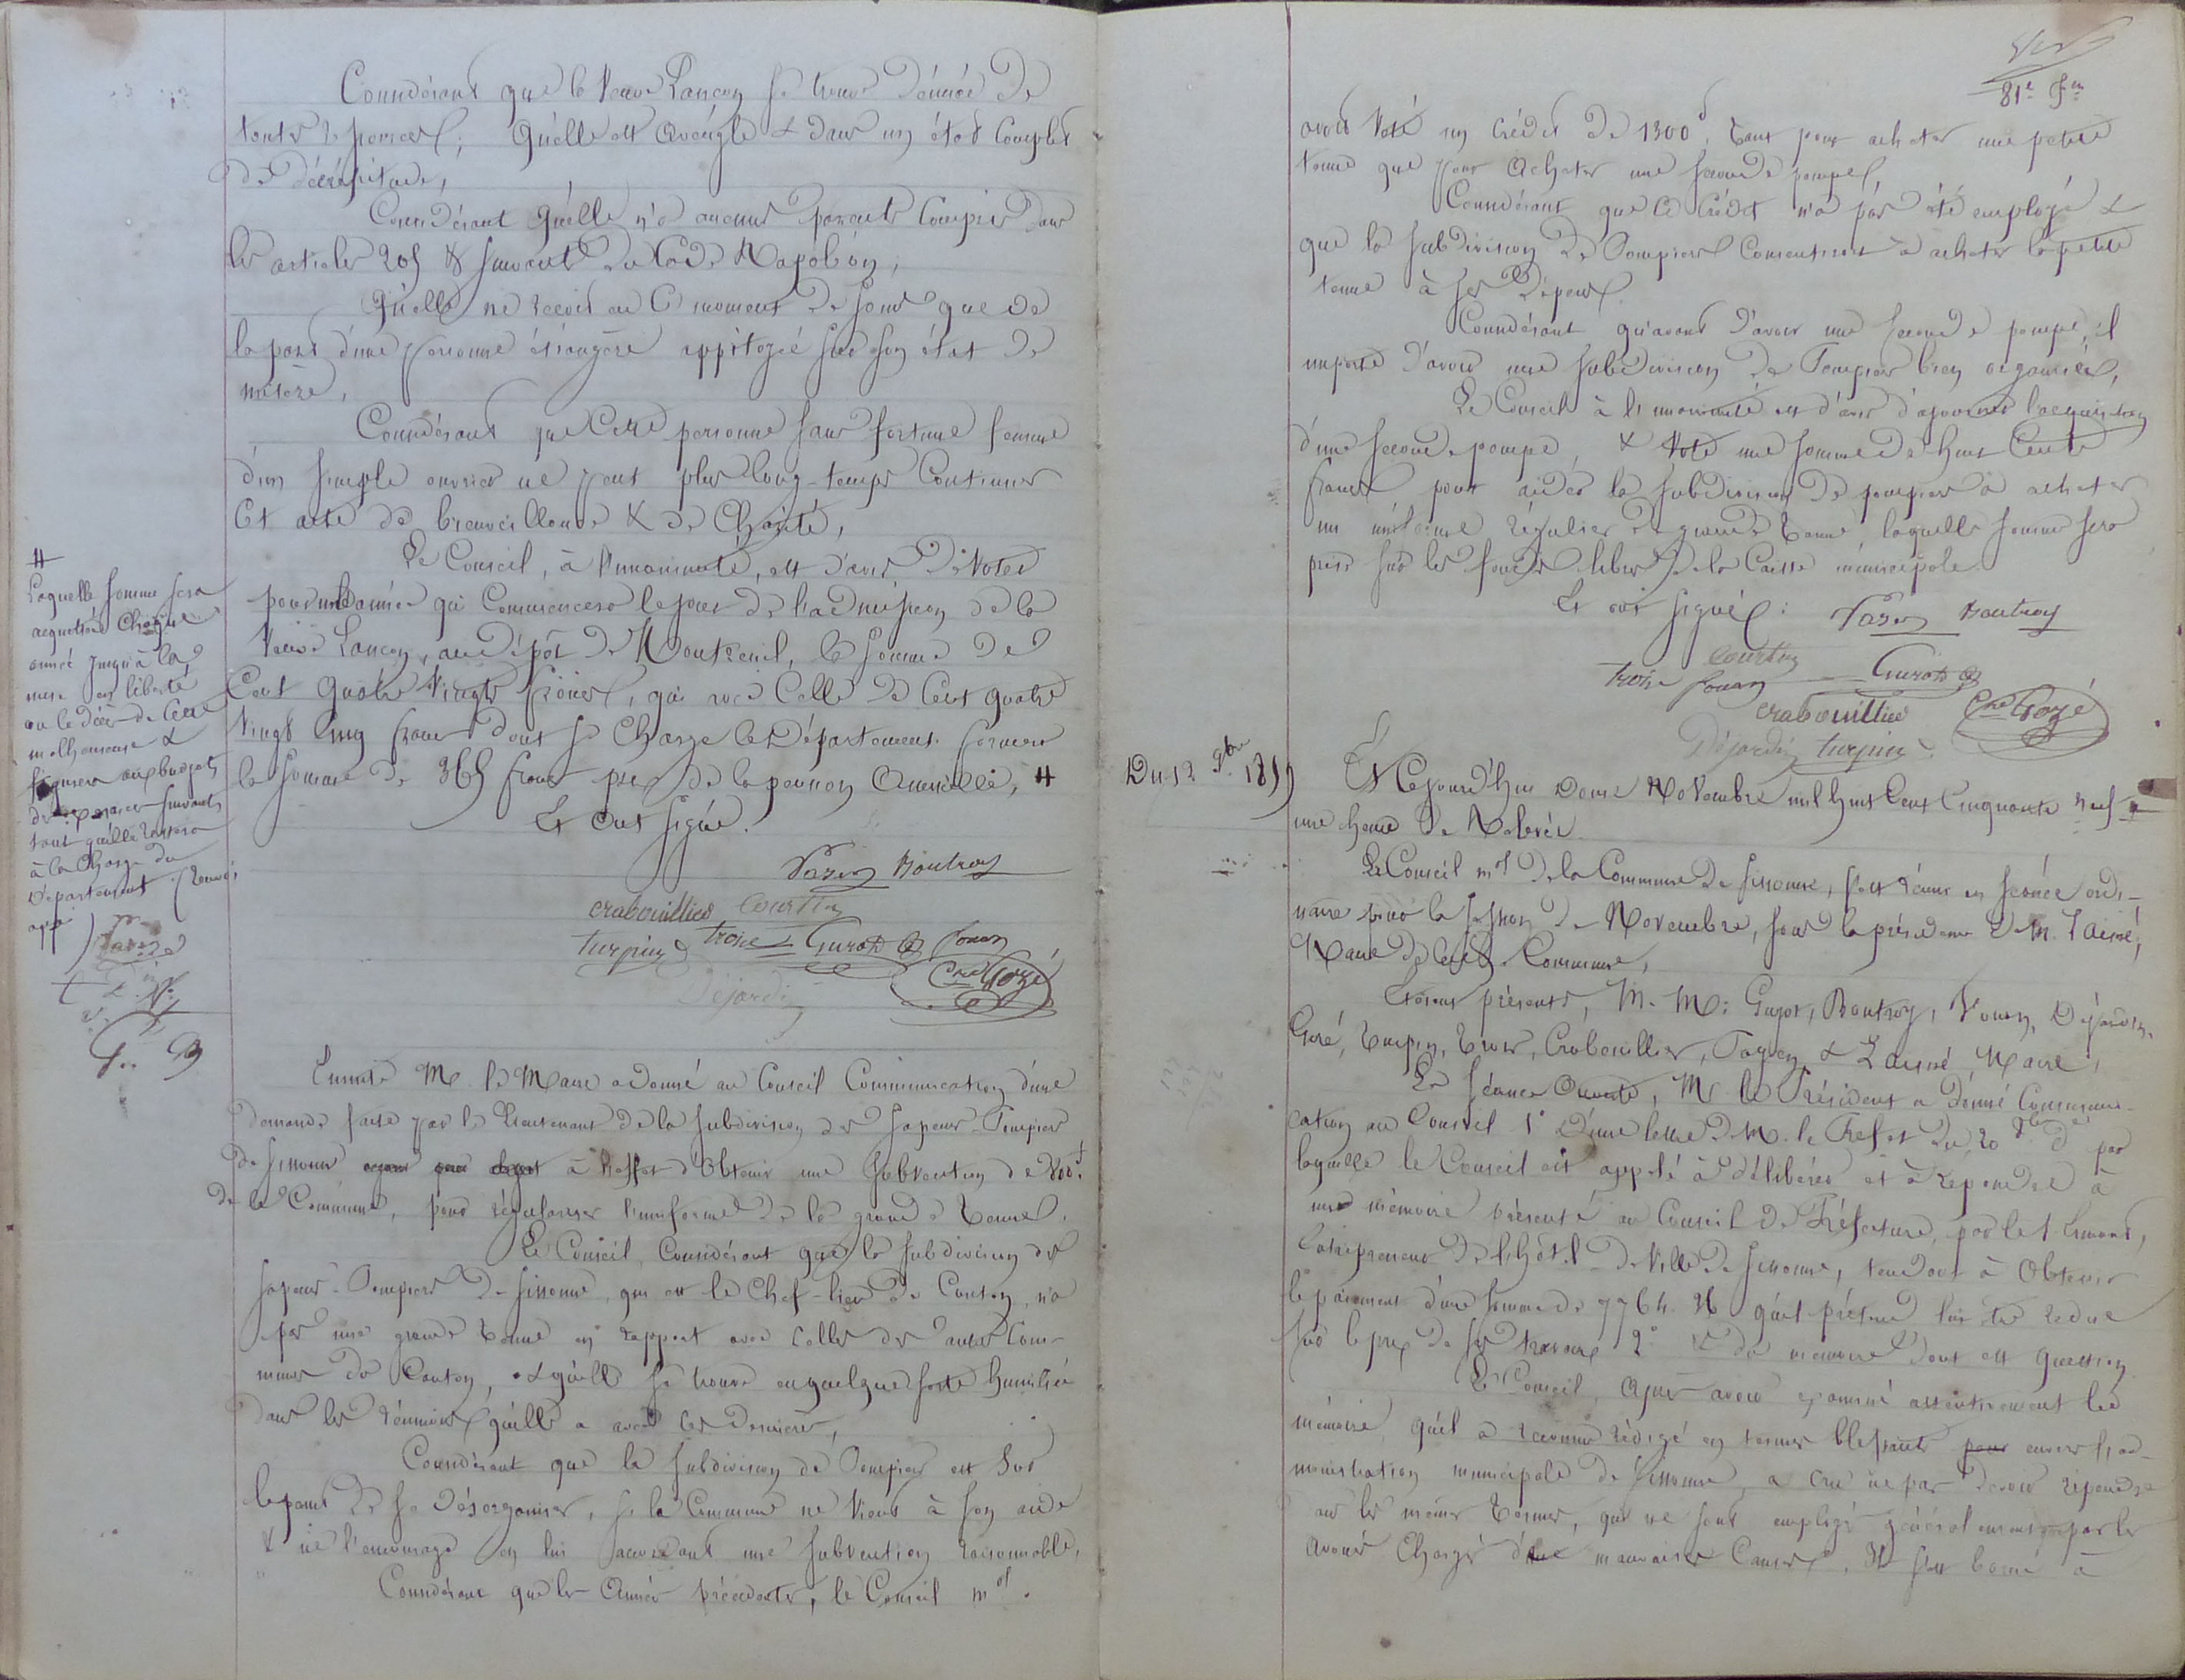 Considérant que la Veuve Lançon se trouve dénuée de
toutes ressources; Qu'elle est aveugle & dans un état complet
de décrépitude,
Considérant qu'elle n'a aucuns parents compris dans
les articles 205 & suivants du Code Napoléon,
Qu'elle ne reçoit en ce moment de soins que de
la part d'une personne étrangère appitoyée sur son état de
misère,
Considérant que cette personne sans fortune femme
d'un simple ouvrier ne peut plus long-temps continuer
cet acte de bienveillance & de charité,
Le Conseil, à l'unanimité, est d'avis de voter
pour une année qui commencera le jour de l'admission de la
Veuve Lançon, au dépôt de Montreuil, la somme de
Cent quatre vingts francs, qui avec celle de cent quatre
vingt cinq francs dont se charge le Département formera
la somme de 365 francs prix de la pension annuelle, #
Et ont signé.
#
Laquelle somme sera
acquittée chaque
année jusqu'à la
mise en liberté
ou le décès de cette
malheureuse &
figurera aux budgets
des exercices suivants
tant qu'elle restera
à la charge du
Département (renvoi
app.
Boutroy
Crabouillier Courtin
turpin troise Guiot Fouan
Cre Gozé
Déjardin
Ensuite Mr. le Maire a donné au Conseil Communication d'une
demande faite par le Lieutenant de la subdivision des sapeurs-Pompiers
de Sissonne à l'effet d'obtenir une subvention de 800f
de la Commune, pour régulariser l'uniforme de la grande tenue.
Le Conseil, Considérant que la subdivision des
sapeurs-Pompiers de Sissonne, qui est le Chef-lieu de Canton, n'a
pas une grande tenue en rapport avec celles des autres Com-
munes du Canton, & qu'elle se trouve en quelque sorte humiliée
dans les réunions qu'elle a avec ces dernières,
Considérant que la subdivision de Pompiers est sur
le point de se désorganiser, si la Commune ne vient à son aide
& ne l'encourage en lui accordant une subvention raisonnable,
Considérant que les années précédentes, le Conseil mal.
81e fet
avait voté un crédit de 1300f, tant pour acheter une petite
tenue que pour acheter une seconde pompe,
Considérant que ce crédit n'a pas été employé &
que la subdivision de Pompiers consentirait à acheter la petite
tenue à ses dépens.
Considérant qu'avant d'avoir une seconde pompe, il
importe d'avoir une subdivision de Pompiers bien organisée,
Le Conseil à l'unanimité est d'avis d'ajourner l'acquisition
d'une seconde pompe, & vote une somme de huit cents
francs, pour aider la subdivision de pompiers à acheter
un uniforme régulier de grande tenue, laquelle somme sera
prise sur les fonds libres de la Caisse municipale.
Et ont signé:
Boutroy
Courtin
troise Fouan Guiot
Crabouillier Cre Gozé
Déjardin turpin
Du 12 9bre 1859
Et Cejourd'hui douze Novembre mil huit cent cinquante neuf
une heure de relevée
Le Conseil mal de la Commune de Sissonne, s'est réuni en séance ordi-
naire pour la session de Novembre, sous la présidence de M. Lainé,
Maire de cette Commune,
Etaient présents, M. M: Guiot, Boutroy, Fouan, Déjardin,
Gozé, Turpin, Troise, Crabouillier, & Lainé, Maire,
La séance ouverte, Mr. le Président a donné Communi-
cation au Conseil 1° d'une lettre de M. le Préfet du 20 par
laquelle le Conseil est appelé à délibérer et à répondre à
un mémoire présenté au Conseil de Préfecture, par le S.
Entrepreneur de l'hôtel de Ville de Sissonne, tendant à obtenir
le paiement d'une somme de 7764. 26 qu'il prétend lui être redue
sur le prix de ses travaux 2° & du mémoire dont est question
Le Conseil, après avoir examiné attentivement le
mémoire, qu'il a reconnu rédigé en termes blessants pour envers l'ad-
ministration municipale de Sissonne, a cru ne pas devoir répondre
avec les mêmes termes, qui ne sont employés généralement que par les
avoués chargés de mauvaises causes. Il s'est borné à